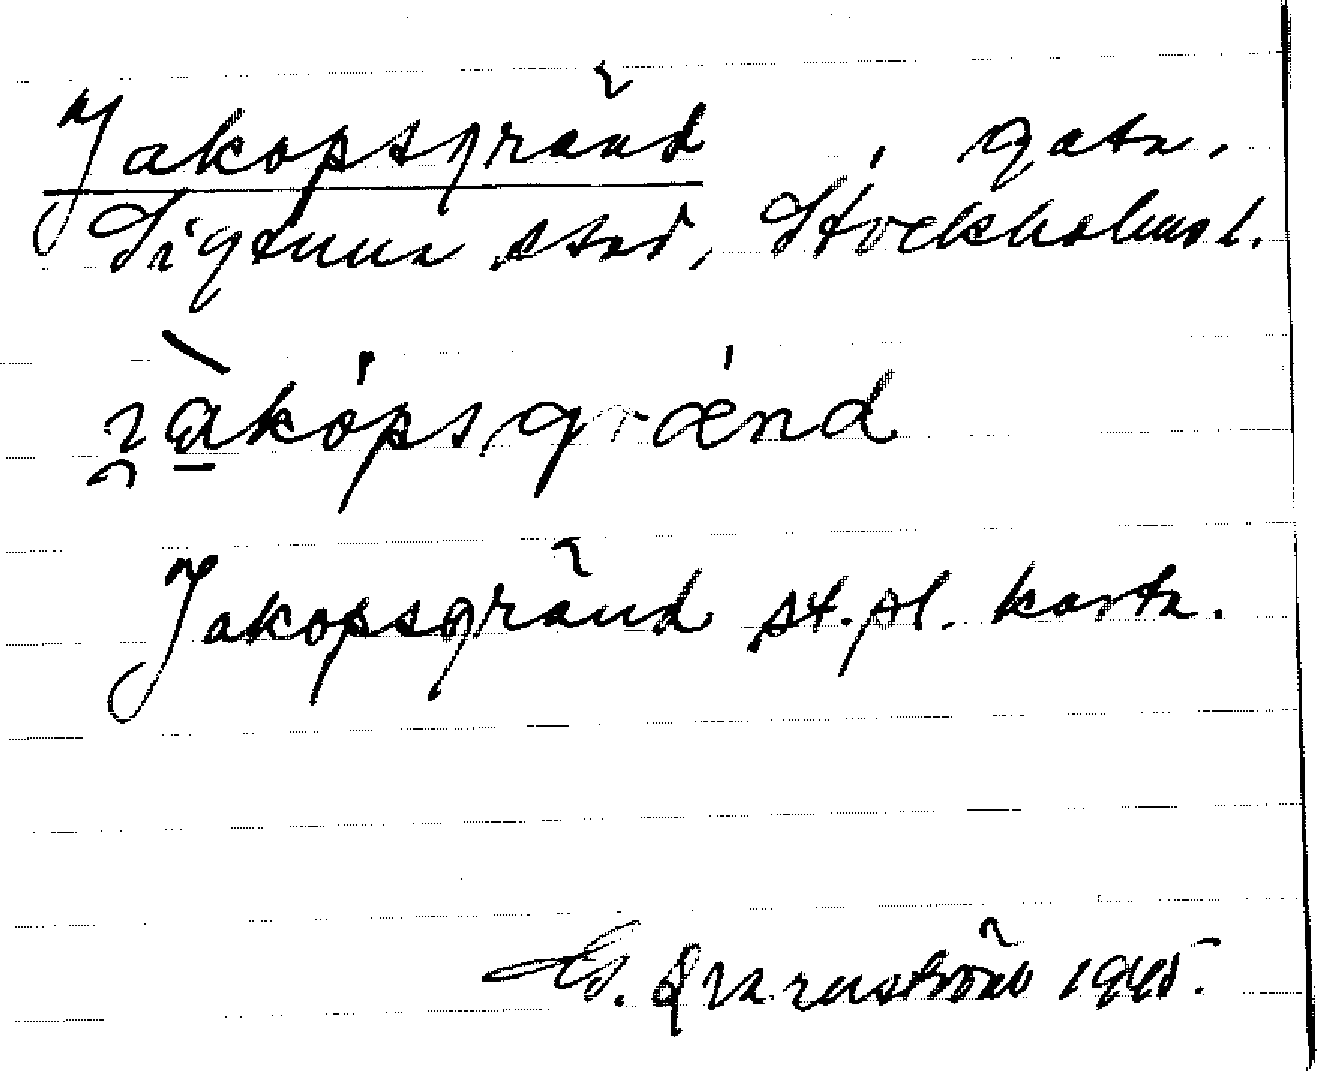 Jakopsgränd, gata,
Sigtuna stad, Stockholms l.
jàkópsgræ̀nd
Jakopsgränd st.pl. karta.
G. Qvarnström 1945.